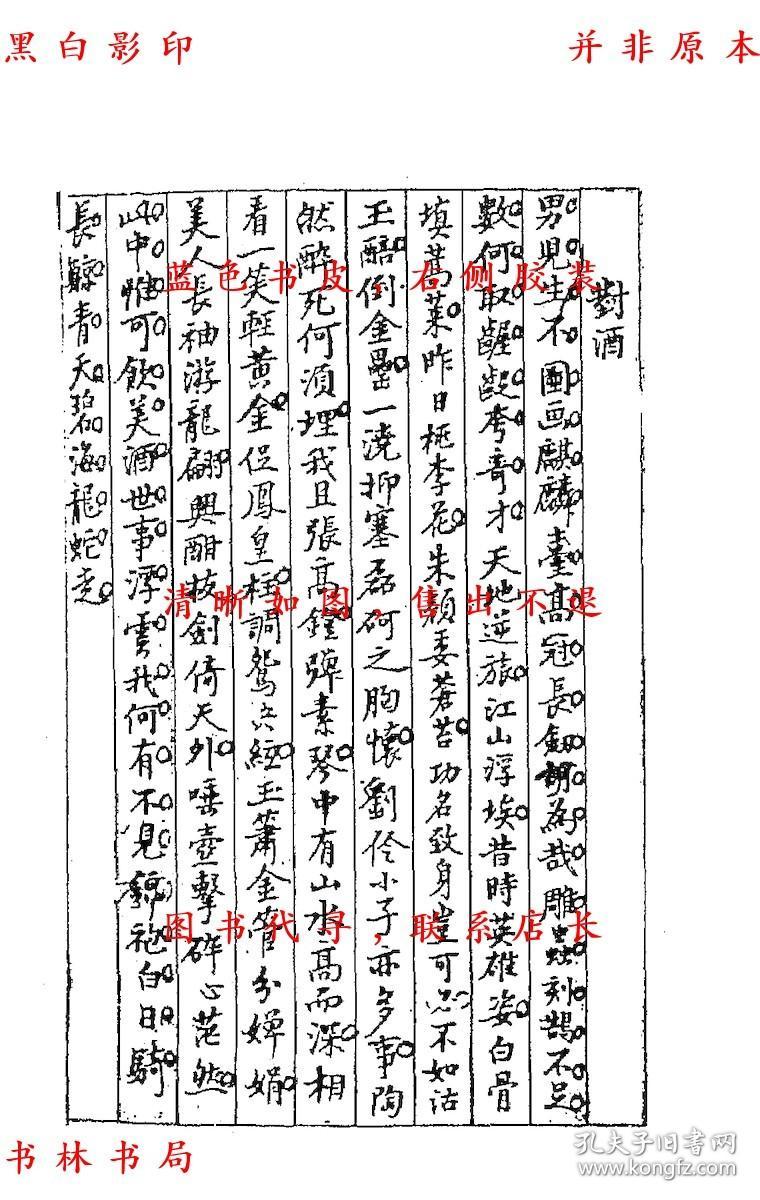 黑白影印
并非原本
對酒
男兒生不圖画麒麟臺高冠長劍胡為哉雕虫刻鵠不足
數何取齷齪夸奇才天地逆旅江山浮埃昔時英雄姿白骨
填蒿萊昨日桃李花朱顏委蒼苔功名致身豈可必不如沽
玉醅倒金罍一澆抑塞磊砢之胸懷劉伶小子亦多事陶
然醉死何須埋我且張高鐘彈素琴中有山水高而深相
看一笑輕黃金促鳳皇柱調鴛央絃玉簫金管兮嬋娟
美人長袖游龍翩興酣拔劍倚天外唾壺擊碎心茫然
此中惟可飲美酒世事浮雲我何有不見錦袍白日騎
長鯨青天碧海龍蛇走
蓝色书皮，右侧胶装
清晰如图，售出不退
图书代寻，联系店长
书林书局
孔夫子旧书网
www.kongfz.com